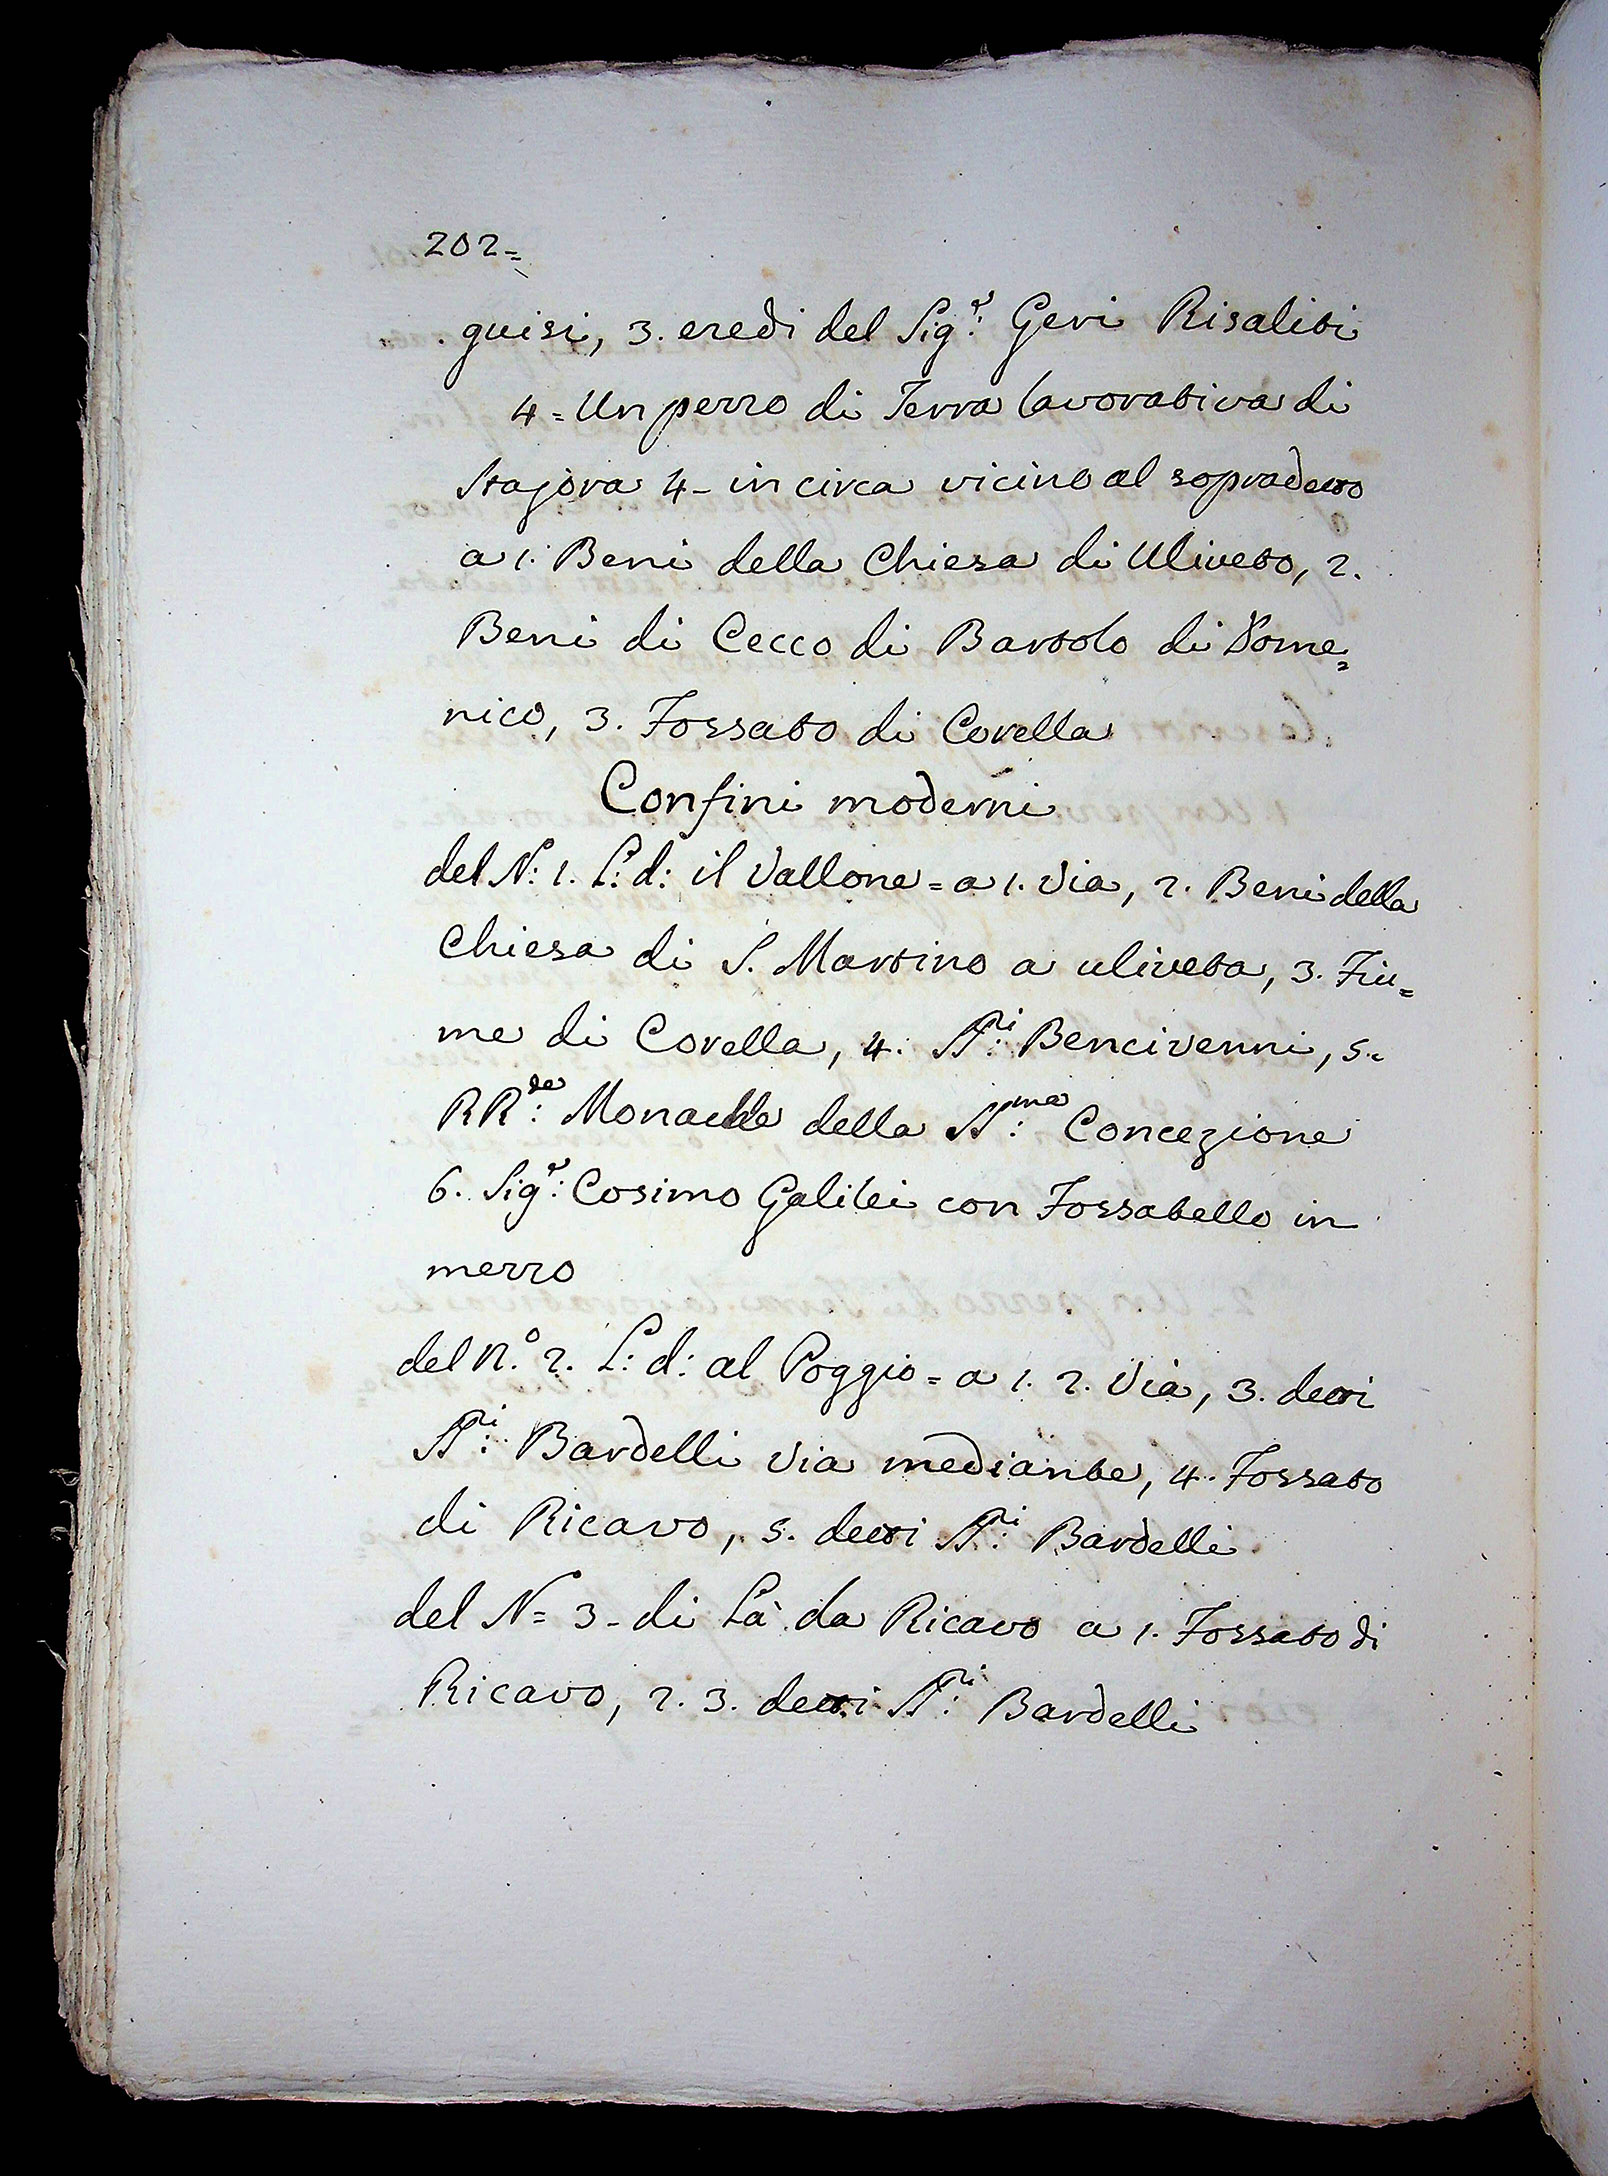 202=
guisi, 3. eredi del Sig.r Geri Risaliti
4= Un pezzo di Terra lavorativa di
Stajora 4- in circa vicino al sopradetto
a 1. Beni della Chiesa di Uliveto, 2.
Beni di Cecco di Bartolo di Dome=
nico, 3. Fossato di Corella
Confini moderni
del N: 1. L: d: il Vallone = a 1. Via, 2. Beni della
Chiesa di S. Martino a uliveta, 3. Fiu=
me di Corella, 4. SS:ri Bencivenni, 5.
RR:de Monache della SS:ma Concezione
6. Sig:r Cosimo Galilei con Fossatello in
mezzo
del N.o 2. L: d: al Poggio = a 1. 2. Via, 3. detti
SS:ri Bardelli Via mediante, 4. Fossato
di Ricavo, 5. detti SS:ri Bardelli
del N= 3- di Là da Ricavo a 1. Fossato di
Ricavo, 2. 3. detti SS:ri Bardelli